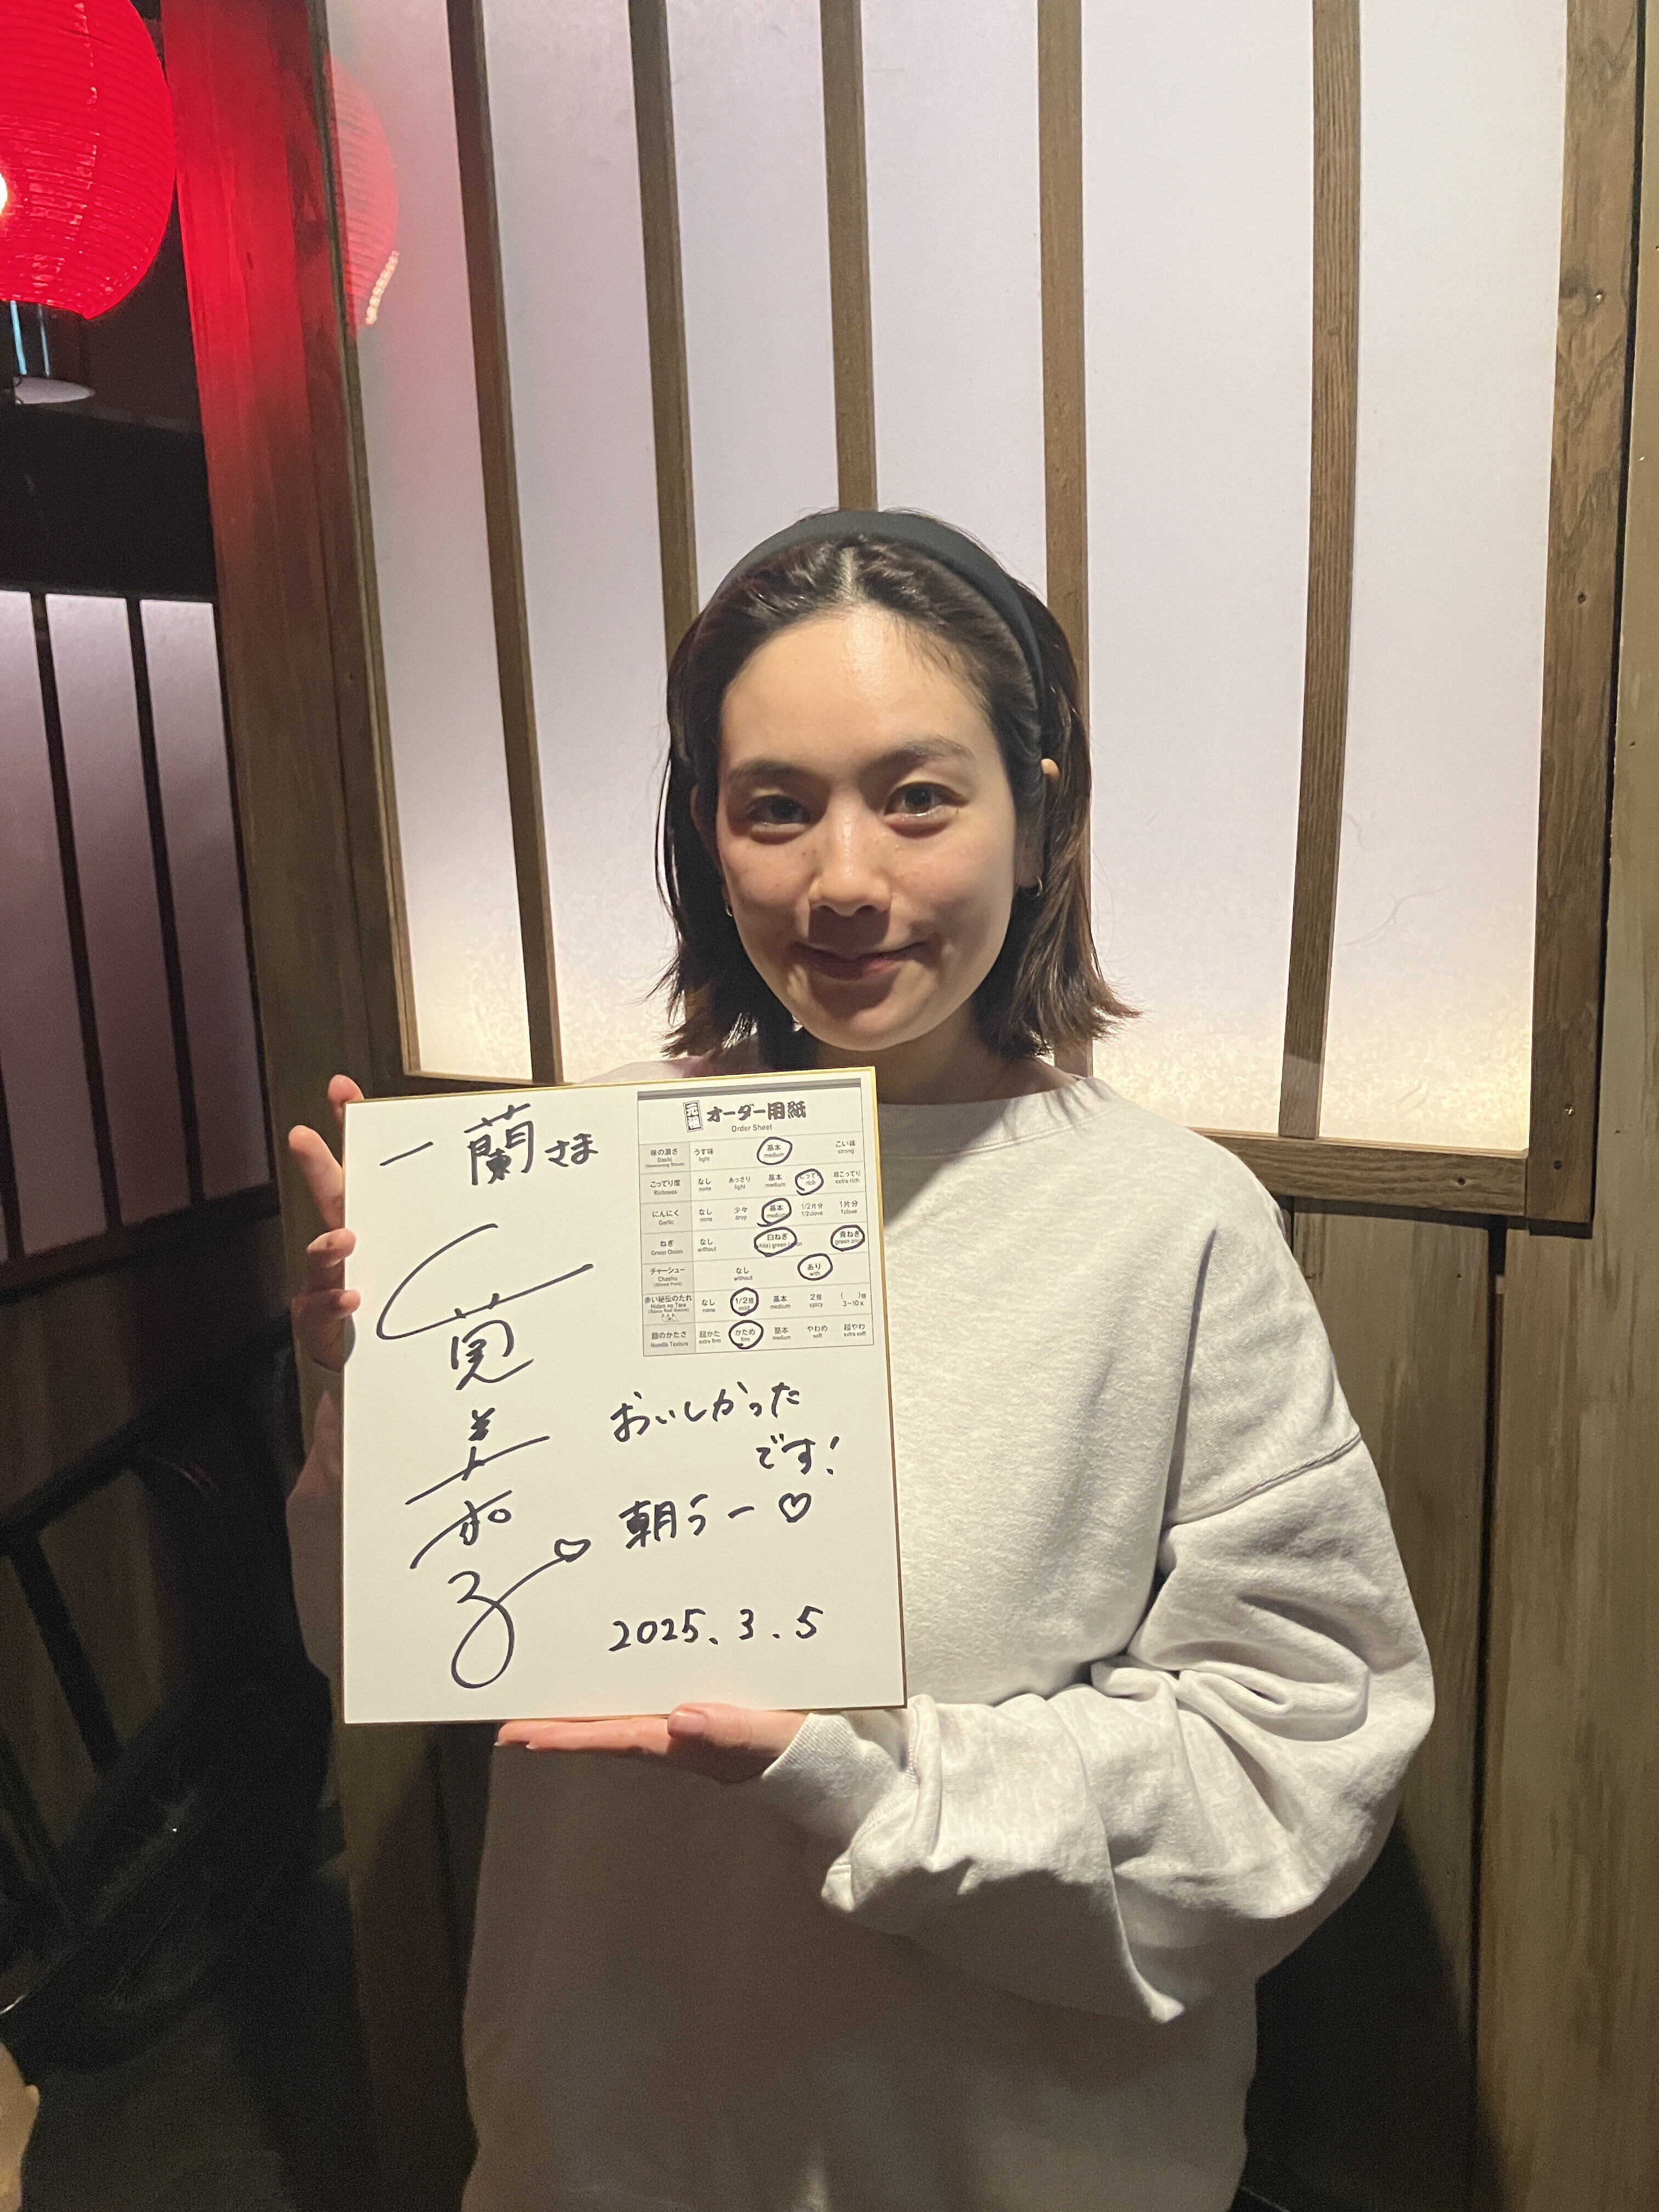 一蘭さま
元祖
オーダー用紙
Order Sheet
味の濃さ Dashi うす味 light 基本 medium こい味 strong
こってり度 Richness なし none あっさり light 基本 medium こってり rich 超こってり extra rich
にんにく Garlic なし none 少々 drop 基本 medium 1/2片分 1/2clove 1片分 1clove
ねぎ Green Onion なし without 白ねぎ 青ねぎ
チャーシュー Chashu (Sliced Pork) なし without あり with
赤い秘伝のたれ Hiden no Tare なし none 1/2倍 mild 基本 medium 2倍 spicy ( )倍 3~10x
麺のかたさ Noodle Texture 超かた extra firm かため firm 基本 medium やわめ soft 超やわ extra soft
筧美和子
おいしかった
です!
朝ラー♡
2025.3.5